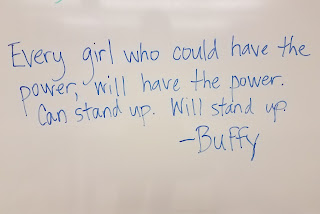 Every girl who could have the
power, will have the power.
Can stand up. Will stand up.
-Buffy